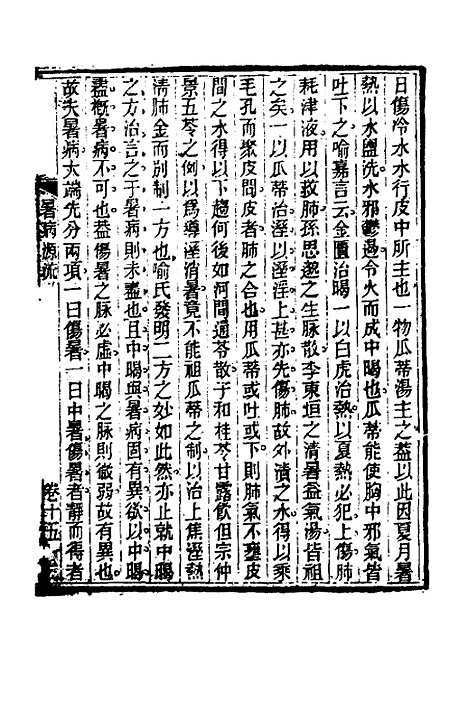 日傷冷水水行皮中所主也一物瓜蒂湯主之蓋以此因夏月暑
熱以水盥洗水邪鬱遏令火而成中暍也瓜蒂能使胸中邪氣皆
吐下之喻嘉言云金匱治暍一以白虎治熱以夏熱必犯上傷肺
耗津液用以救肺孫思邈之生脉散李東垣之清暑益氣湯皆祖
之矣一以瓜蒂治溼以溼淫上甚亦先傷肺故外漬之水得以乘
毛孔而聚皮間皮者肺之合也用瓜蒂或吐或下則肺氣不壅皮
間之水得以下趨何後如河間通苓散子和桂苓甘露飲但宗仲
景五苓之例以爲導溼消暑竟不能祖瓜蒂之制以治上焦溼熱
清肺金而别制一方也喻氏發明二方之妙如此然亦止就中暍
之方治言之于暑病則未盡也且中暍與暑病固有異欲以中暍
盡槪暑病不可也葢傷暑之脉必虛中暍之脉則微弱故有異也
故夫暑病大端先分兩項一曰傷暑一曰中暑傷暑者靜而得者
暑病源流
卷十五